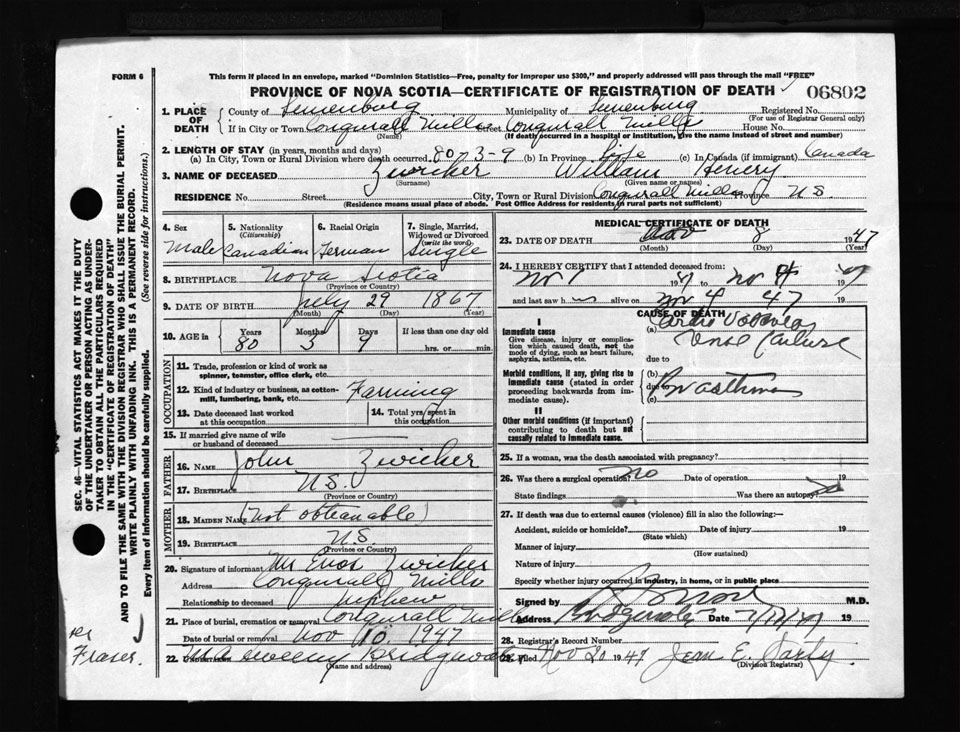 FORM 6
This form if placed in an envelope, marked "Dominion Statistics—Free, penalty for improper use $300," and properly addressed will pass through the mail "FREE"
PROVINCE OF NOVA SCOTIA—CERTIFICATE OF REGISTRATION OF DEATH
06802
1. PLACE OF DEATH
County of Lunenburg Municipality of Lunenburg Registered No.
(For use of Registrar General only)
If in City or Town Conquerall Mills Street Conquerall Mills House No.
(Name) (If death occurred in a hospital or institution, give the name instead of street and number)
2. LENGTH OF STAY (in years, months and days)
(a) In City, Town or Rural Division where death occurred 80-3-9 (b) In Province Life (c) In Canada (if immigrant) Canada
3. NAME OF DECEASED Zwicker William Henery
(Surname) (Given name or names)
RESIDENCE No. Street City, Town or Rural Division Conquerall Mills Province N.S.
(Residence means usual place of abode. Post Office Address for residents in rural parts not sufficient)
4. Sex Male
5. Nationality (Citizenship) Canadian
6. Racial Origin German
7. Single, Married, Widowed or Divorced (write the word) Single
8. BIRTHPLACE Nova Scotia
(Province or Country)
9. DATE OF BIRTH July 29 1867
(Month) (Day) (Year)
10. AGE in Years Months Days If less than one day old
80 3 9 hrs. or min.
OCCUPATION
11. Trade, profession or kind of work as spinner, teamster, office clerk, etc.
12. Kind of industry or business, as cotton-mill, lumbering, bank, etc. Farming
13. Date deceased last worked at this occupation
14. Total yrs. spent in this occupation
15. If married give name of wife or husband of deceased
FATHER
16. NAME John Zwicker
17. BIRTHPLACE N.S.
(Province or Country)
MOTHER
18. MAIDEN NAME (Not obteanable)
19. BIRTHPLACE N.S.
(Province or Country)
20. Signature of informant Mr Enos Zwicker
Address Conquerall Mills
Relationship to deceased Nephew
21. Place of burial, cremation or removal Conquerall Mills
Date of burial or removal Nov 10, 1947
22. UNDERTAKER Sweeny Bridgewater
(Name and address)
MEDICAL CERTIFICATE OF DEATH
23. DATE OF DEATH Nov 8 1947
(Month) (Day) (Year)
24. I HEREBY CERTIFY that I attended deceased from:
to 19
and last saw h alive on Nov 4 47 19
CAUSE OF DEATH
I
Immediate cause
Give disease, injury or complication which caused death, not the mode of dying, such as heart failure, asphyxia, asthenia, etc.
(a)
Failure
due to
Morbid conditions, if any, giving rise to immediate cause (stated in order proceeding backwards from immediate cause).
(b)
due to asthma
(c)
II
Other morbid conditions (if important) contributing to death but not causally related to immediate cause.
25. If a woman, was the death associated with pregnancy?
26. Was there a surgical operation? No Date of operation 19
State findings Was there an autopsy? No
27. If death was due to external causes (violence) fill in also the following:—
Accident, suicide or homicide? Date of injury 19
(State which)
Manner of injury
(How sustained)
Nature of injury
Specify whether injury occurred in industry, in home, or in public place
Signed by M.D.
Address Bridgewater Date 19
28. Registrar's Record Number
29. Filed Nov 20 1947 Jean E.
(Division Registrar)
SEC. 46—VITAL STATISTICS ACT MAKES IT THE DUTY
OF THE UNDERTAKER OR PERSON ACTING AS UNDER-
TAKER TO OBTAIN ALL THE PARTICULARS REQUIRED
IN THE "CERTIFICATE OF REGISTRATION OF DEATH"
AND TO FILE THE SAME WITH THE DIVISION REGISTRAR WHO SHALL ISSUE THE BURIAL PERMIT.
WRITE PLAINLY WITH UNFADING INK. THIS IS A PERMANENT RECORD.
Every item of information should be carefully supplied. (See reverse side for instructions.)
Fraser.